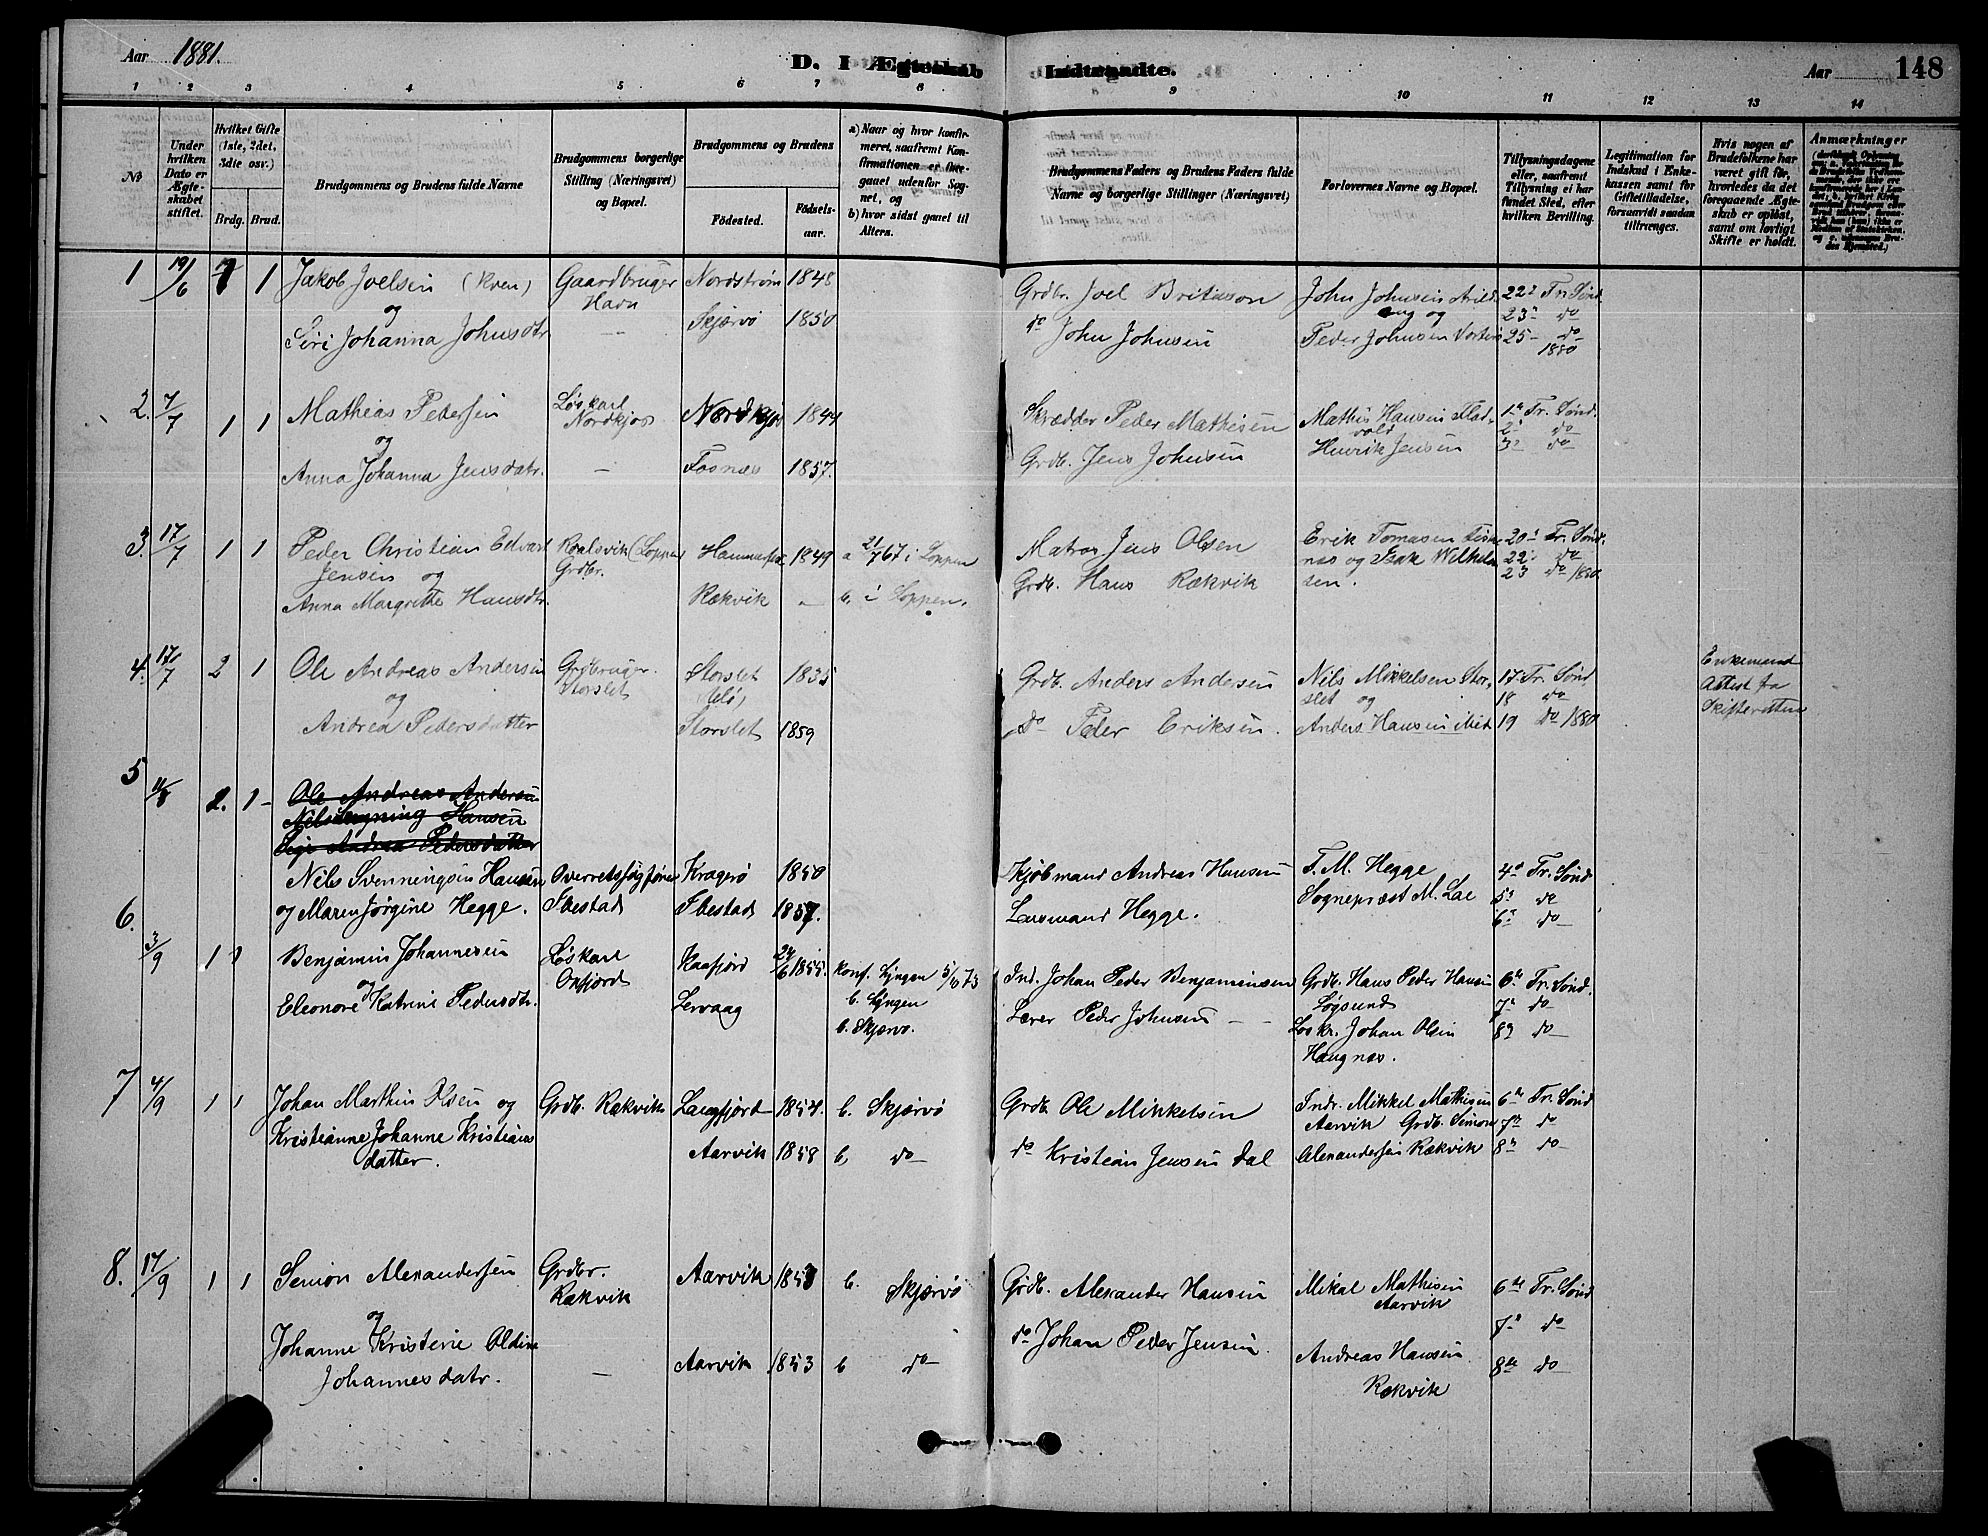 Aar 1881.
D. I Ægteskab Indtraadte.
Aar 148
1 2 3 4 5 6 7 8 9 10 11 12 13 14
No
Under hvilken Dato er Ægteskabet stiftet.
Hvilket Gifte (1ste, 2det, 3die osv.)
Brdg. Brud.
Brudgommens og Brudens fulde Navne
Brudgommens borgerlige Stilling (Næringsvei) og Bopæl.
Brudgommens og Brudens
Fødested. Fødselsaar.
a) Naar og hvor konfirmeret, saafremt Konfirmationen er foregaaet udenfor Sognet, og
b) hvor sidst gaaet til Alters.
Brudgommens Faders og Brudens Faders fulde Navne og borgerlige Stillinger (Næringsvei)
Forlovernes Navne og Bopæl.
Tillysningsdagene eller, saafremt Tillysning ei har fundet Sted, efter hvilken Bevilling.
Legitimation for Indskud i Enkekassen samt for Giftetilladelse, forsaavidt saadan tiltrænges.
Hvis nogen af Brudefolkene har været gift før, hvorledes da det foregaaende Ægteskab er opløst, samt om lovligt Skifte er holdt.
Anmærkninger
1 19/6 1 1 Jakob Joelsen (Kven) Gaardbruger Nordstrøm 1848 Grdbr. Joel John Johnsen 22 Tr. Sønd.
og Havn og 23 do
Siri Johanna Johnsdtr — Skjærvø 1850 do John Johnsen Peder Johnsen 25 do
1880
2. 7/7 1 1 Mathias Pedersen Løskarl Nordkjos 1844 Skrædder Peder Mathisen Mathis Hansen 1ste Tr. Sønd.
og Nordkjos 2 do
Anna Johanna Jensdatr. — Fosnæs 1857. Grdb. Jens Johnsen Henrik Jensen 3 do
3. 17/7 1 1 Peder Christian Edvart (Loppen) Hammerfest 1849 a 21/7 67 i Loppen Matros Jens Olsen Erik Tomasen 20 Tr. Sønd.
Jensen og Grdbr. og Isak Wilhelm 22 do
Anna Margrethe Hansdtr. Rækvik — b. i Loppen. Grdb. Hans Rækvik sen. 23 do 1880
4. 17/7 2 1 Ole Andreas Andersen Grdbruger. Storslet 1835 Grdb. Anders Andersen Nils Mikkelsen Stor- 17 Tr. Sønd. Enkemand
og Storslet slet og 18 do Attest fra
Andrea Pedersdatter Storslet 1859 do Peder Eriksen. Anders Hansen 19 do 1880 Skifteretten
5 11/8 2. 1 Ole Andreas Andersen
Hansen
Andrea Pedersdatter
Nils Svenningsen Hansen Overretssagfører Kragerø 1850 Kjøbmand Andreas Hansen T. M. Hegge 4de Tr. Sønd.
og Maren Jørgine Hegge. Ibestad Ibestad 1857. Lensmand Hegge. Sognepræst M. Lae 5 do
6 do
6. 3/9 1 1 Benjamin Johannesen Løskarl Kaafjord 24/6 1855 konf. Lyngen 5/10 73 Ind. Johan Peder Benjaminsen Grdb. Hans Peder Hansen 6te Tr. Sønd.
og Oxfjord b. Lyngen Løgsund 7 do
Eleonore Katrine Pedersdtr. Lervaag b. Skjærvø. Lærer Peder Johnsen — Løskr. Johan Olsen 8 do
Haugnæs.
7 4/9 1 1 Johan Marthin Olsen og Grdb. Rækvik Langfjord 1854. b. Skjærvø Grdb. Ole Mikkelsen Indr. Mikkel Mathisen 6te Tr. Sønd
Kristianne Johanne Kristians Aarvik Grdb. Simon 7de do
datter. Aarvik 1858 b. do do Kristian Jensen Dal Alexandersen Rækvik 8de do
8. 17/9 1 1 Simon Alexandersen Grdbr. Aarvik b. Skjærvø Grdb. Alexander Hansen Mikal Mathisen 6te Tr. Sønd
og Rækvik Aarvik 7 do
Johanne Kristine Aldine do Johan Peder Jensen. Andreas Hansen 8de do
Johannesdatr. — Aarvik 1853 b do Rækvik